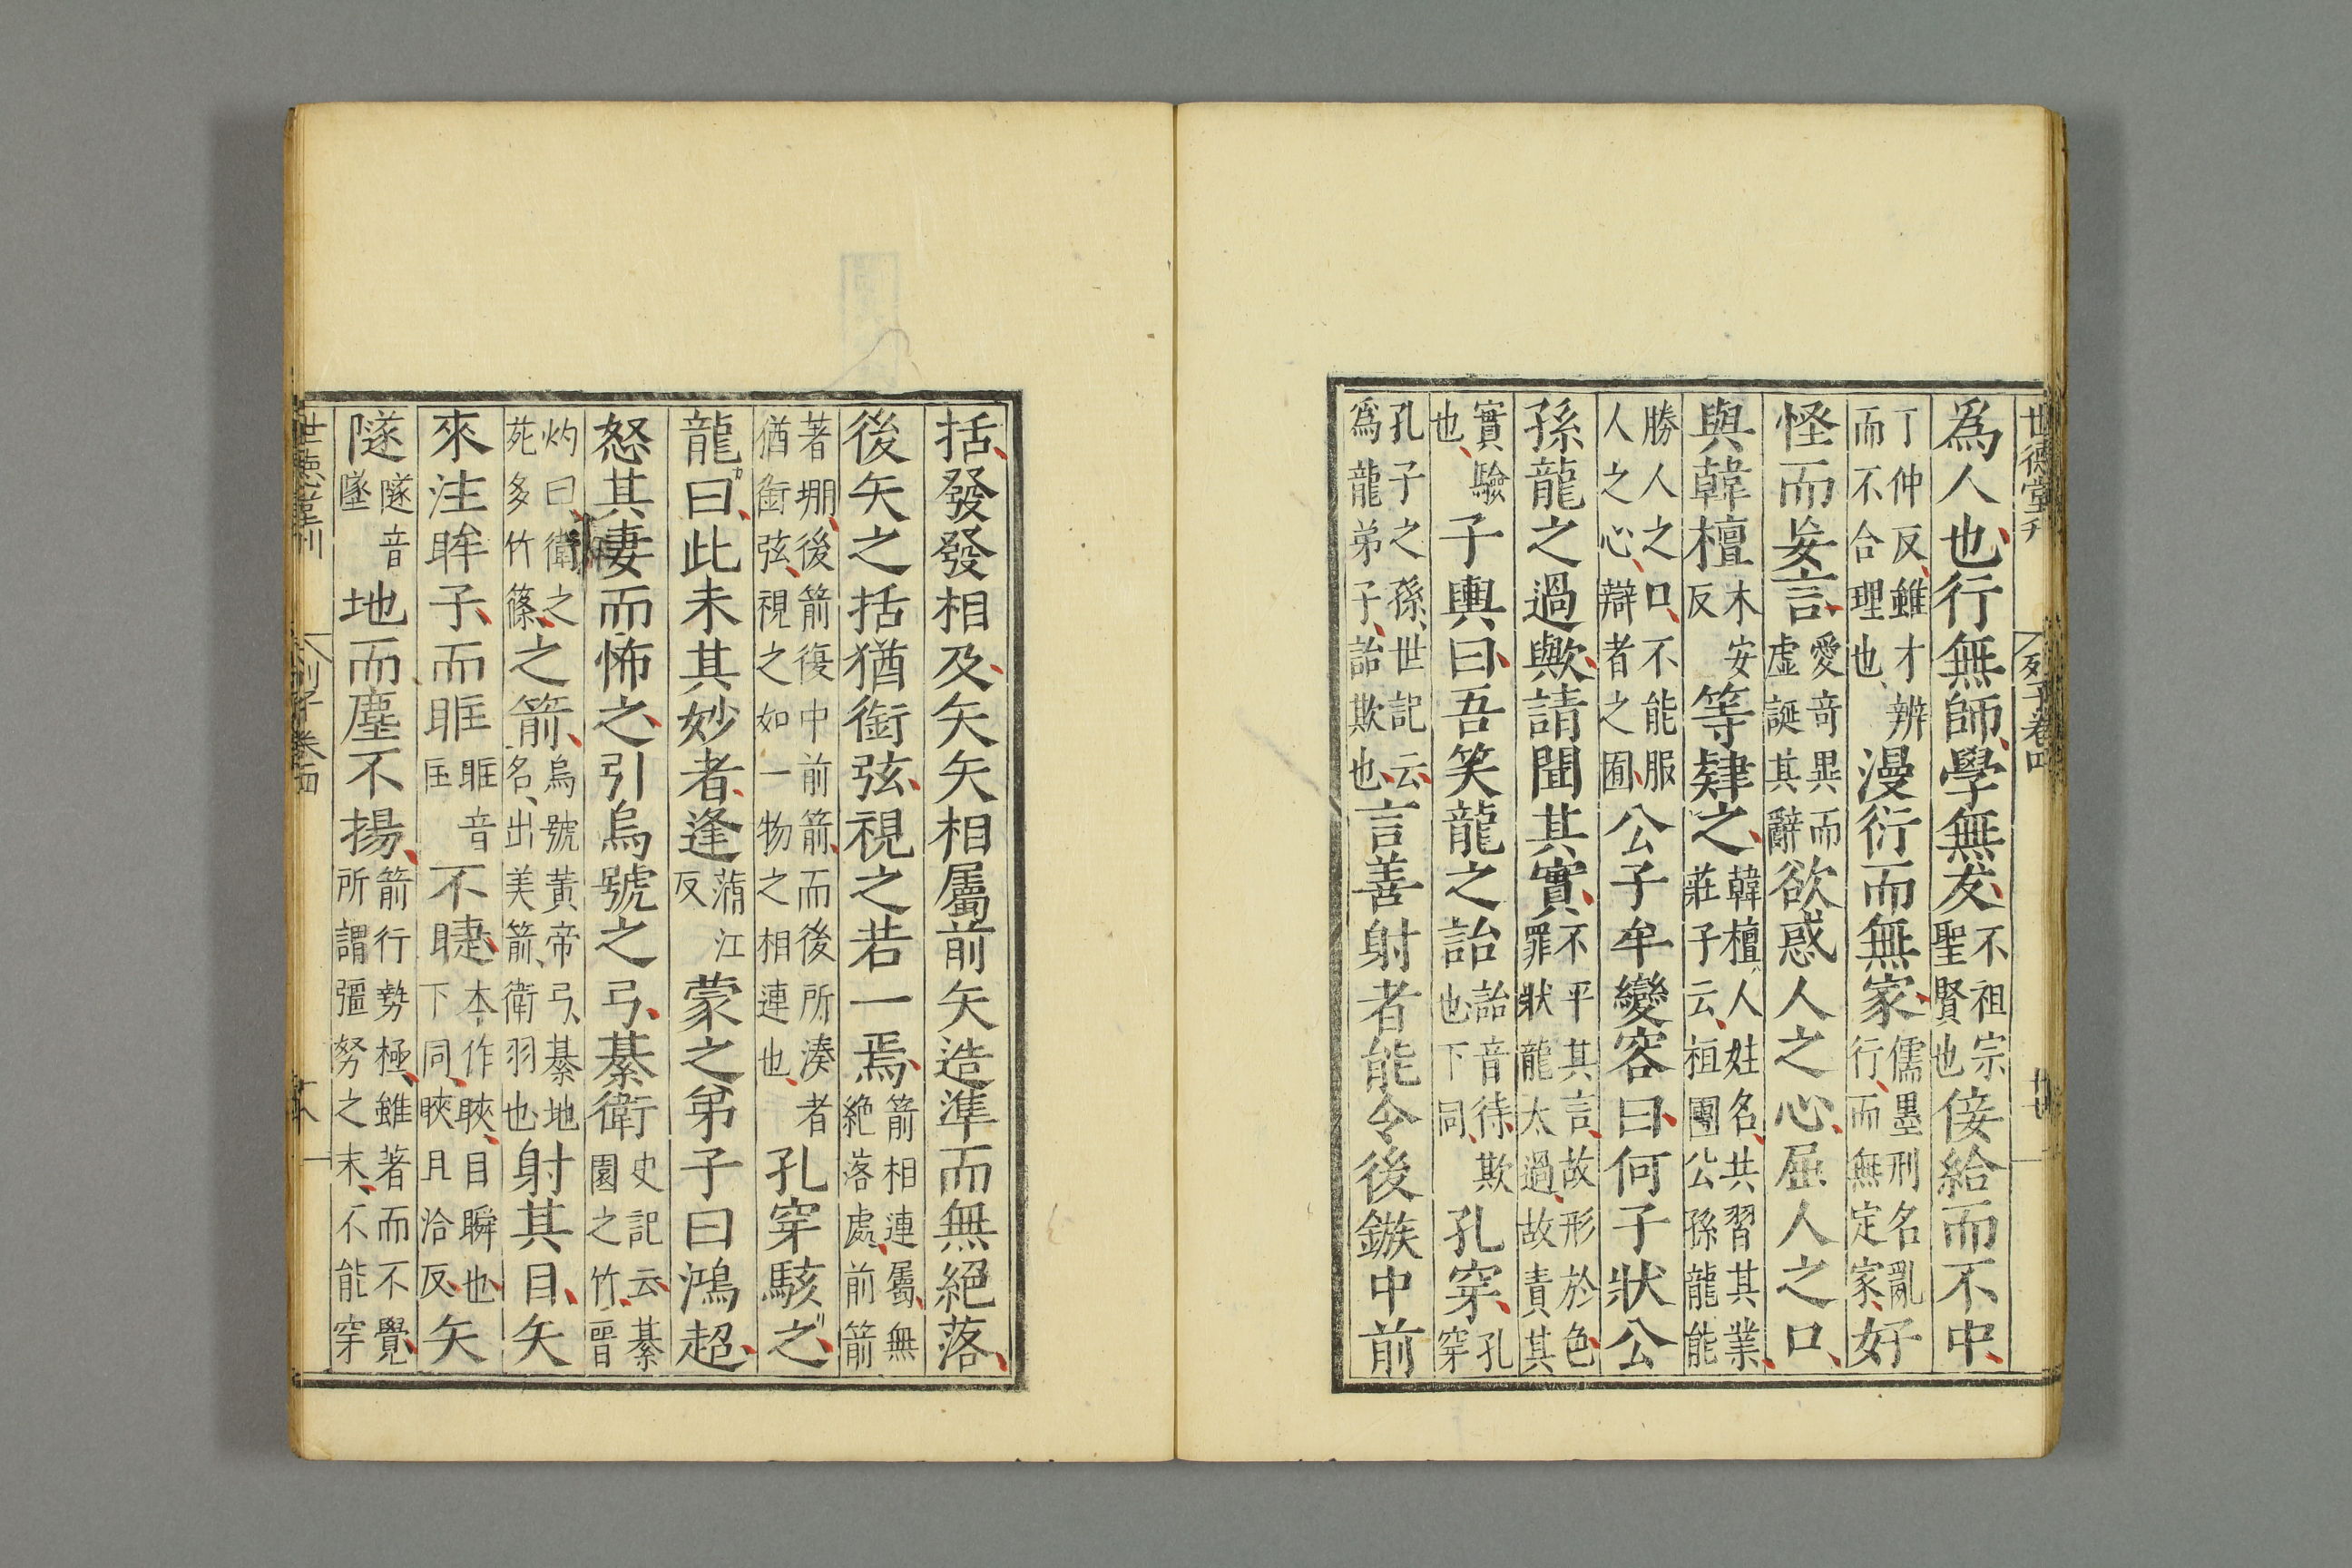 世德堂刊 列子卷四 廿七
為人也行無師學無友不祖宗聖賢也佞給而不中
丁仲反雖才辨而不合理也漫衍而無家儒墨刑名亂行而無定家好
怪而妄言愛奇異而虛誕其辭欲惑人之心屈人之口
與韓檀木安反等肄之韓檀人姓名共習其業莊子云桓團公孫龍能
勝人之口不能服人之心辯者之囿公子牟變容曰何子狀公
孫龍之過歟請聞其實不平其言故形於色罪狀龍太過故責其
實驗也子輿曰吾笑龍之詒詒音待欺也下同孔穿孔穿
孔子之孫世記云為龍弟子詒欺也言善射者能令後鏃中前
括發發相及矢矢相屬前矢造準而無絕落
後矢之括猶銜弦視之若一焉箭相連屬無絕落處前箭
著堋後箭復中前箭而後所湊者猶銜弦視之如一物之相連也孔穿駭之
龍曰此未其妙者逢蒲江反蒙之弟子曰鴻超
怒其妻而怖之引烏號之弓綦衛史記云綦園之竹晉
灼曰衛之苑多竹篠之箭烏號黃帝弓綦地名出美箭衛羽也射其目矢
來注眸子而眶眶音匡不睫本作䀹目瞬也下同䀹且洽反矢
隧隧音墜地而塵不揚箭行勢極雖著而不覺所謂彊努之末不能穿
世德堂刊 列子卷四 廿八